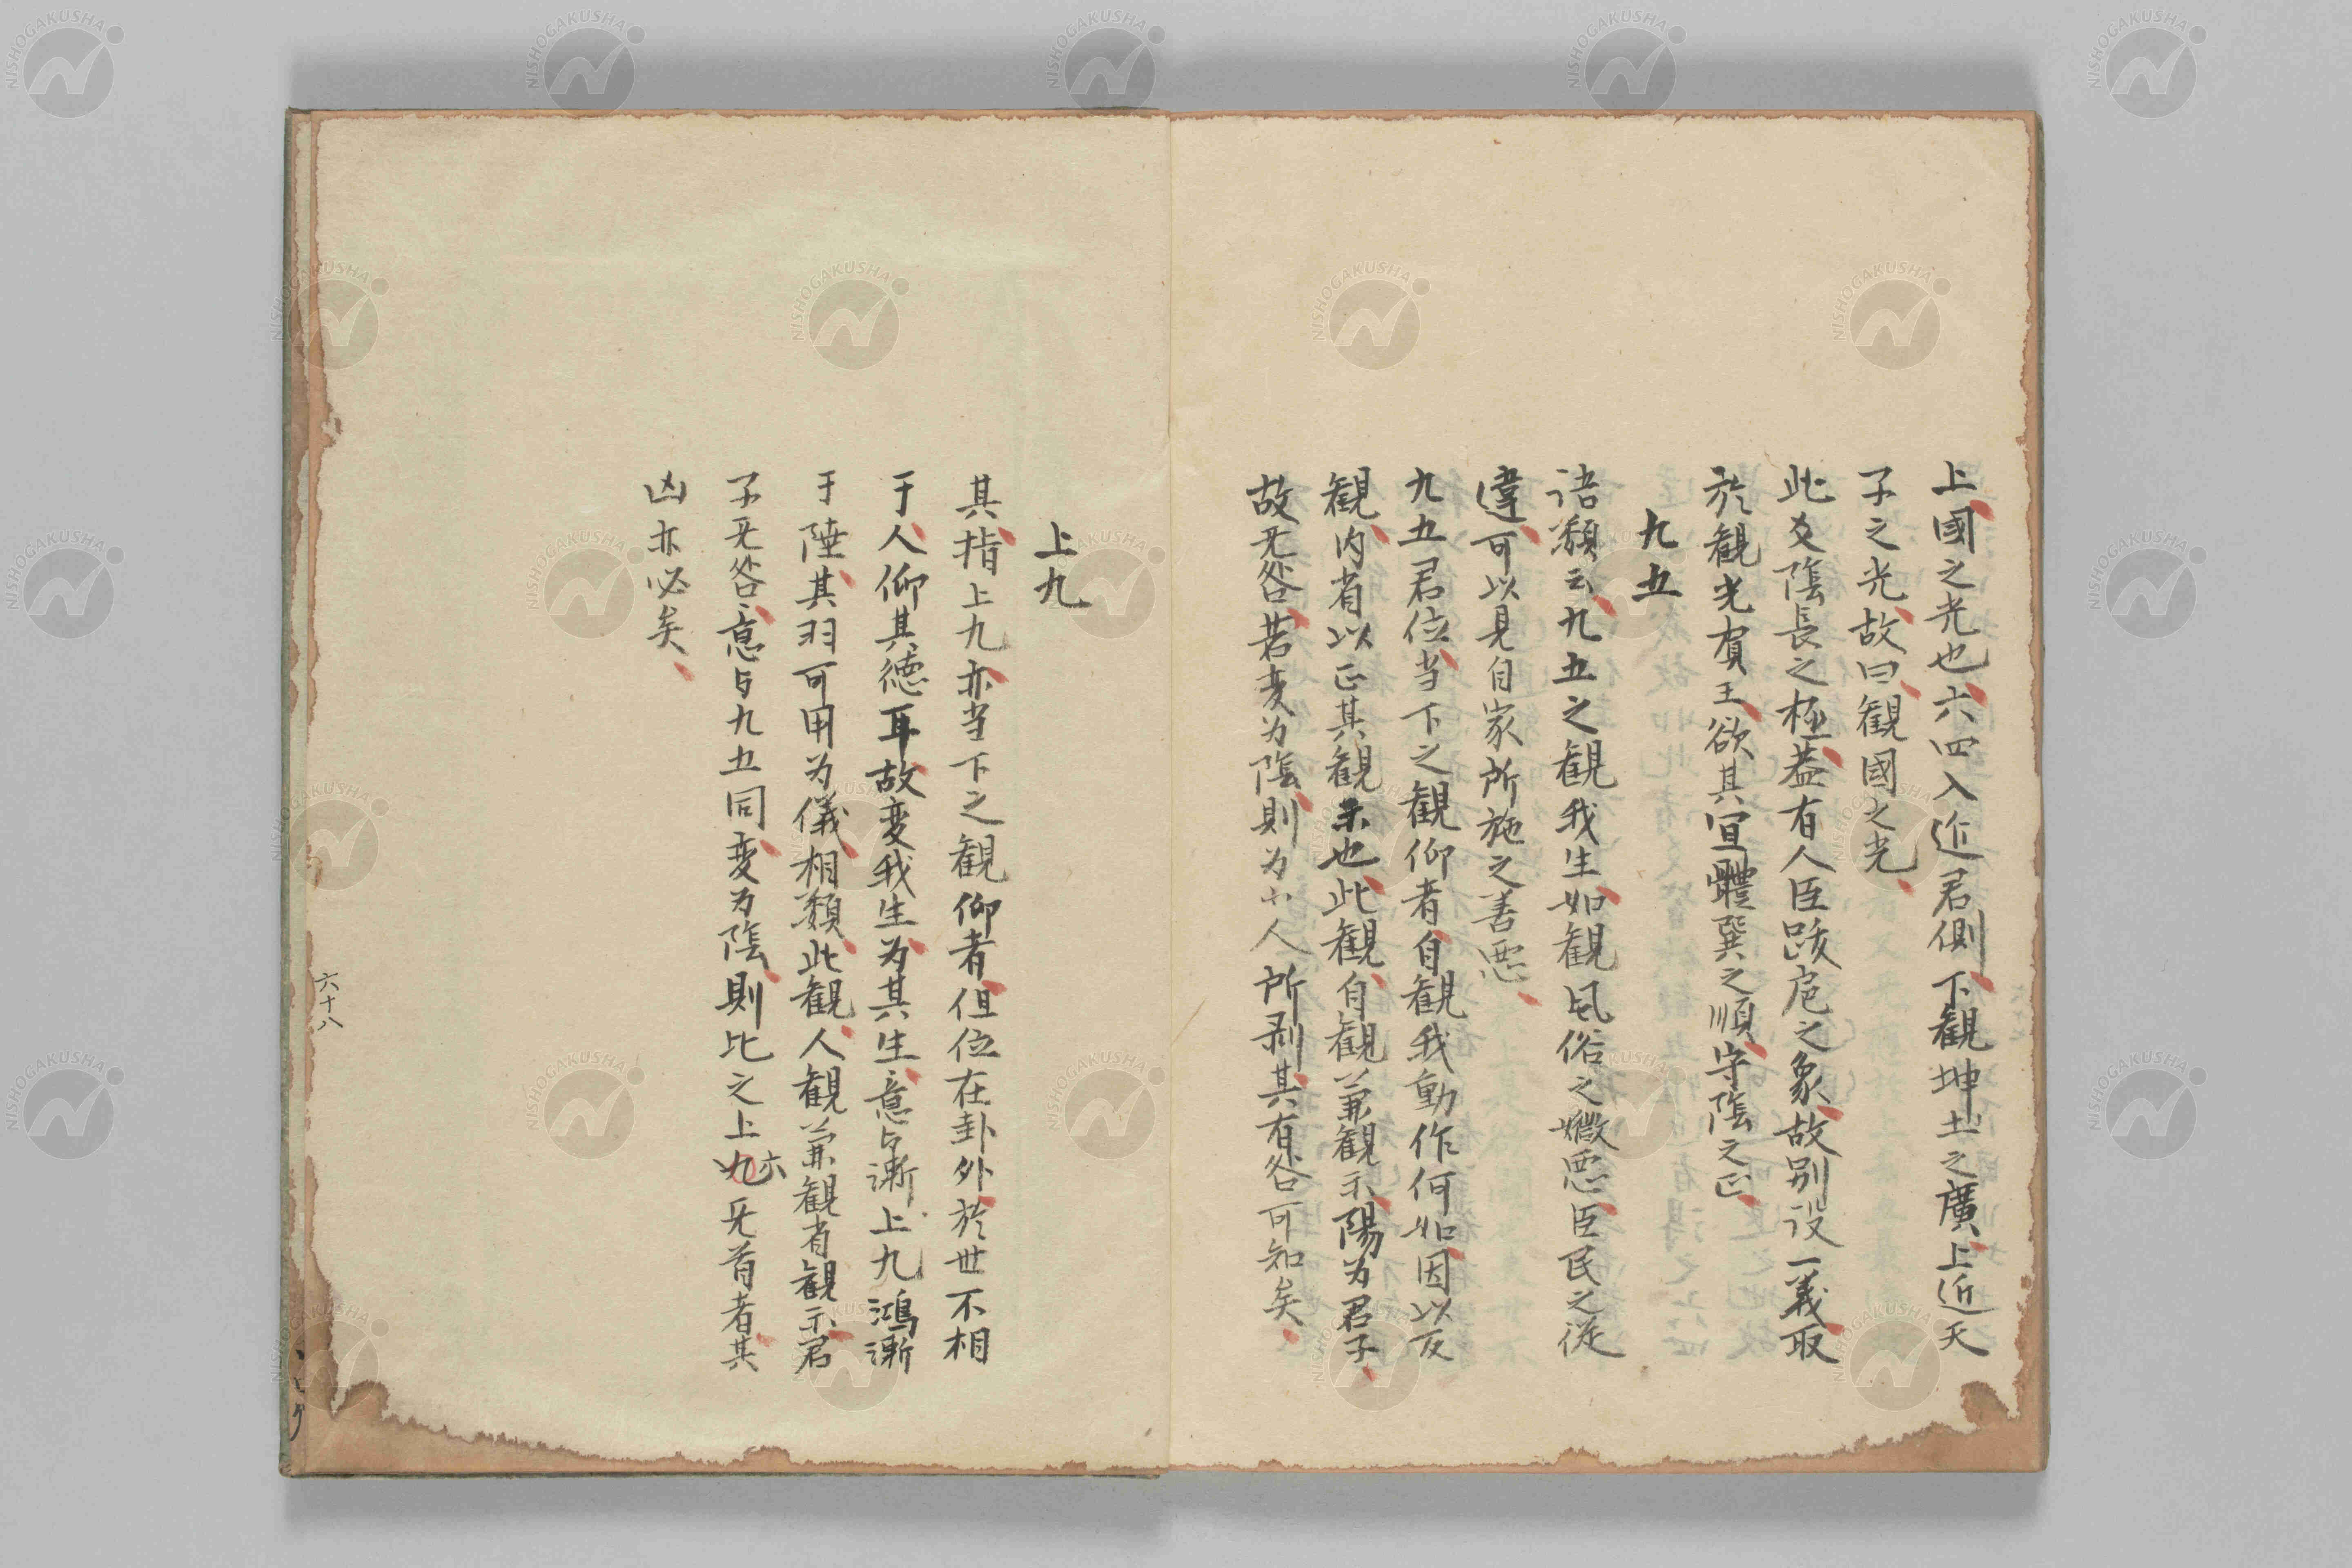 上國之光也六四入近君側下観坤土之廣上近天
子之光故曰観國之光
此爻陰長之極葢有人臣跋扈之象故別设一義取
於観光賓王欲其宜體巽之順守陰之正
九五
语類云九五之観我生如観风俗之媺惡臣民之從
違可以見自家所施之善惡
九五君位当下之観仰者自観我動作何如因以反
観内省以正其観示也此観自観兼観示陽为君子
故无咎若变为陰則为小人所剥其有咎可知矣
上九
其指上九亦当下之観仰者但位在卦外於世不相
于人仰其德耳故变我生为其生意与漸上九鴻漸
于陸其羽可用为儀相類此観人観兼観省観示君
子无咎意与九五同变为陰則比之上九六无首者其
凶亦必矣
六十八
NISHOGAKUSHA